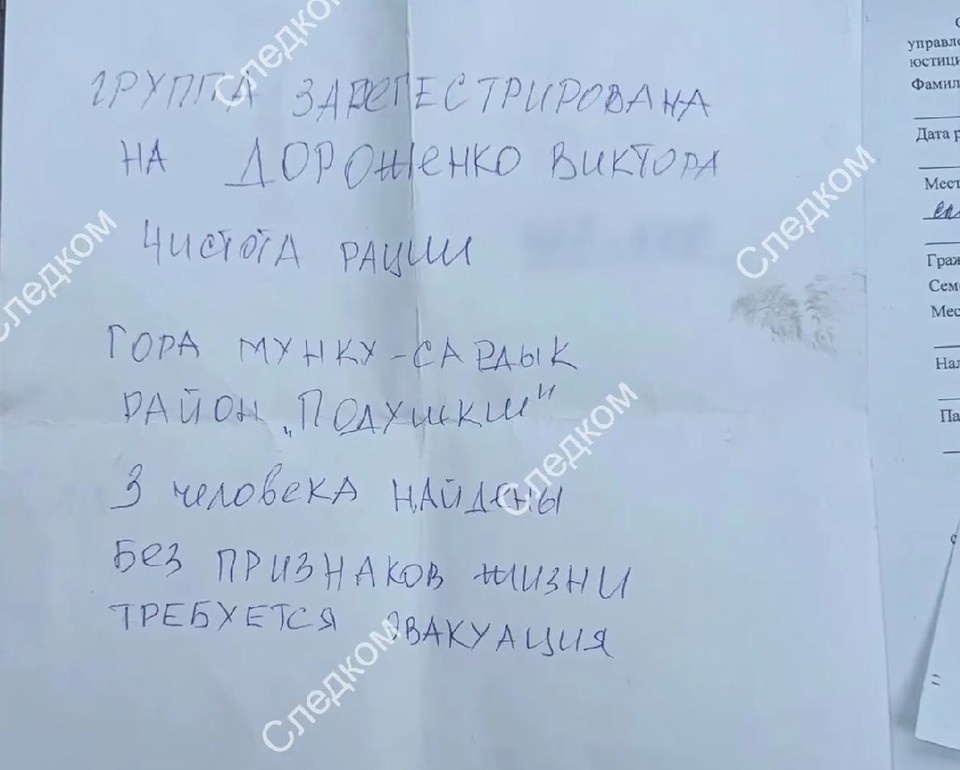 ГРУППА ЗАРЕГЕСТРИРОВАНА
НА ДОРОЖЕНКО ВИКТОРА
ЧИСТОТА РАЦИИ
ГОРА МУНКУ-САРДЫК
РАЙОН „ПОДУШКИ"
3 человека НАЙДЕНЫ
БЕЗ ПРИЗНАКОВ ЖИЗНИ
ТРЕБУЕТСЯ ЭВАКУАЦИЯ
Следком
Следком
Следком
Следком
Следком
управл
юстици
Фамил
Дата р
Мест
Граж
Сем
Мес
Нал
Па